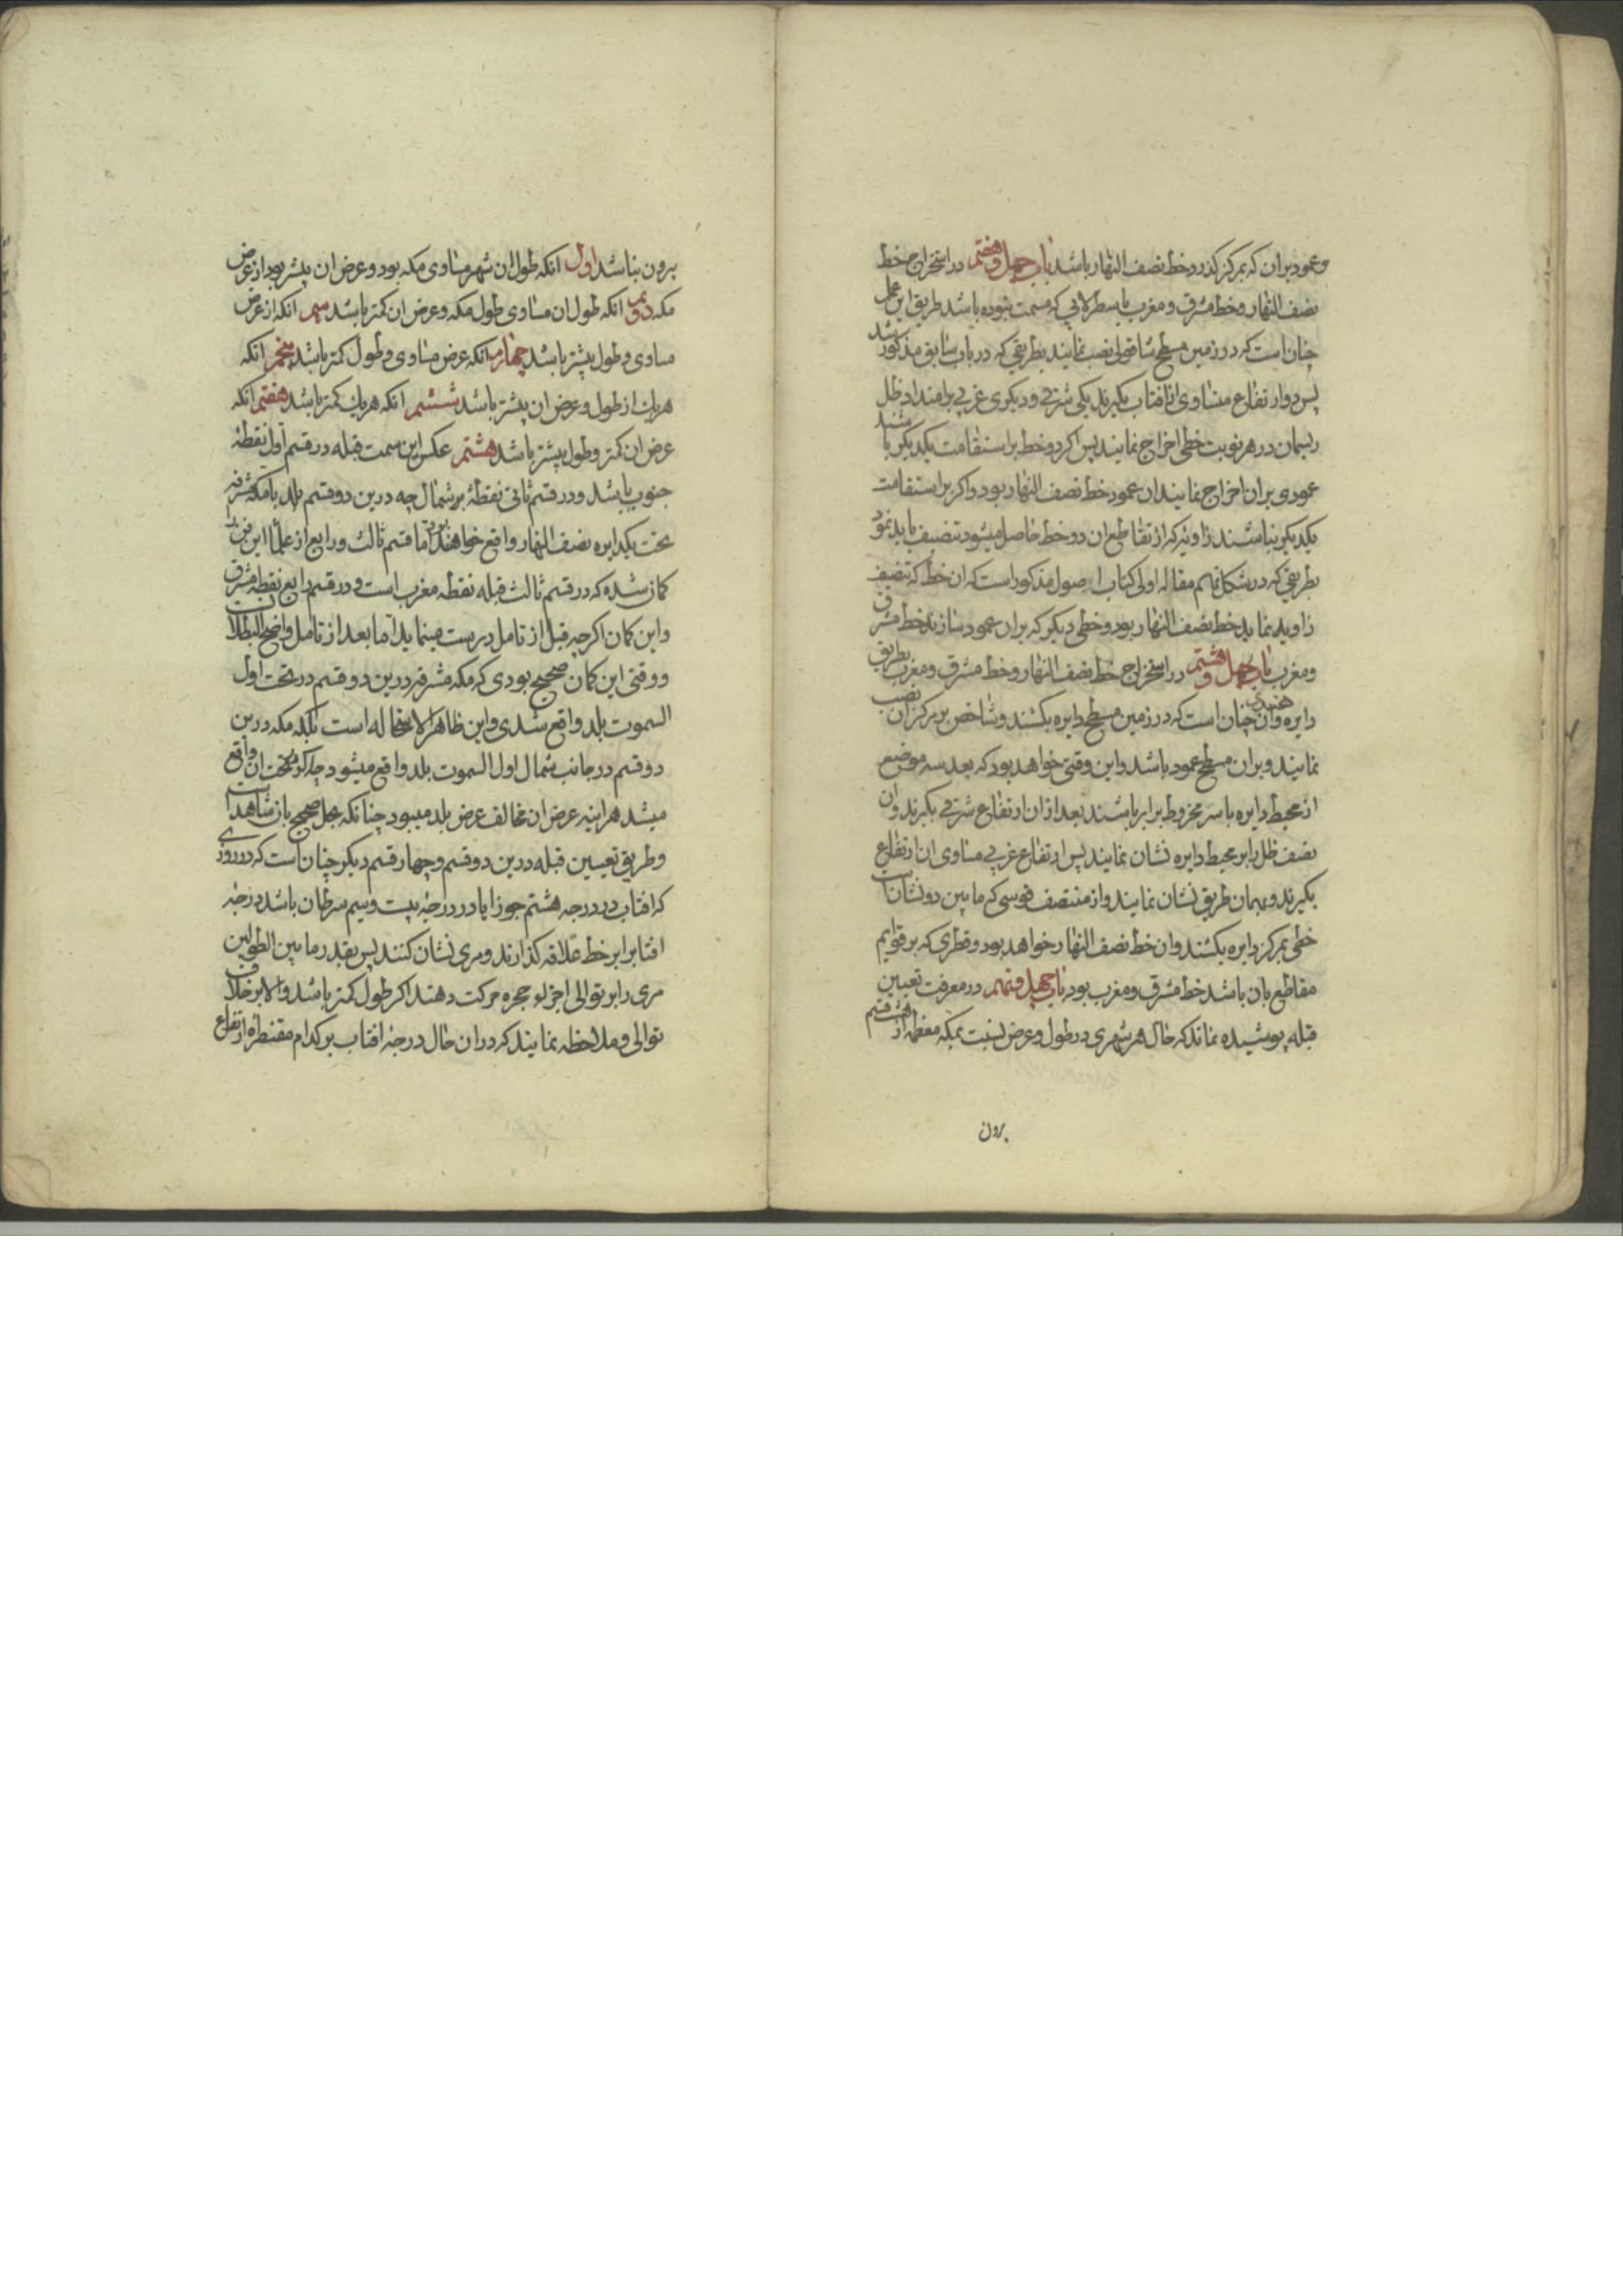 وعمود بران که بمرکز کذرد خط نصف النهار باشد باب چهل وهفتم در استخراج خط
نصف النهار وخط مشرق ومغرب باسطرلابی که مسمت نبوده باشد طریق این عمل
چنان است که در زمین مسطح شاقولی نصب نمایند بطریقی که در باب سابق مذکور شد
پس دو ارتفاع متساوی از افتاب بکیرند یکی شرقی ودیکری غربی بر امتداد ظل
ریسمان در هر نوبت خطی اخراج نمایند پس اکر دو خط بر استقامت یکدیکر باشند
عمودی بران اخراج نمایند ان عمود خط نصف النهار بود واکر بر استقامت
یکدیکر نباشند زاویه که از تقاطع ان دو خط حاصل میشود تنصیف باید نمود
بطریقی که در شکل نهم مقاله اولی کتاب اصول مذکور است که ان خط که تنصیف
زاویه نماید خط نصف النهار بود وخطی دیکر که بران عمود سازند خط مشرق
ومغرب باب چهل وهشتم در استخراج خط نصف النهار وخط مشرق ومغرب بطریق
دایره هندی وان چنان است که در زمین مسطح دایره بکشند وشاخص بر مرکز ان نصب
نمایند وبران مسطح عمود باشد واین وقتی خواهد بود که بعد سه موضع
از محیط دایره با سر مخروط برابر باشند بعد ازان ارتفاع شرقی بکیرند وان
نصف ظل را بر محیط دایره نشان نمایند پس ارتفاع غربی مساوی ان ارتفاع
بکیرند وبهمان طریق نشان نمایند واز منتصف قوسی که مابین دو نشان است
خطی بمرکز دایره بکشند وان خط نصف النهار خواهد بود وقطری که بر قوایم
مقاطع بان باشد خط مشرق ومغرب بود باب چهل ونهم در معرفت تعیین
قبله پوشیده نماند که حال هر شهری در طول وعرض نسبت بمکه معظمه از هشت قسم
برون
برون نباشد اول انکه طول ان شهر مساوی مکه بود وعرض ان بیشتر بود از عرض
مکه دویم انکه طول ان مساوی طول مکه وعرض ان کمتر باشد سیم انکه از عرض
مساوی وطول بیشتر باشد چهارم انکه عرض مساوی وطول کمتر باشد پنجم انکه
هریک از طول وعرض ان بیشتر باشد ششم انکه هریک کمتر باشد هفتم انکه
عرض ان کمتر وطول بیشتر باشد هشتم عکس این سمت قبله در قسم اول نقطهٔ
جنوب باشد ودر قسم ثانی نقطهٔ شمال چه درین دو قسم بلد با مکه مشرفه
تحت یک دایره نصف النهار واقع خواهند بود اما قسم ثالث ورابع از علما این فن
کمان شده که در قسم ثالث قبله نقطه مغرب است ودر قسم رابع نقطه مشرق
واین کمان اکرچه قبل از تامل درست مینماید اما بعد از تامل واضح البطلان است
ووقتی این کمان صحیح بودی که مکه مشرفه درین دو قسم در تحت اول
السموت بلد واقع شدی واین ظاهر الاستحاله است بلکه مکه درین
دو قسم در جانب شمال اول السموت بلد واقع میشود چه اکر تحت ان واقع
میشد هراینه عرض ان مخالف عرض بلد میبود چنانکه عمل صحیح بان شاهد است
وطریق تعیین قبله درین دو قسم وچهار قسم دیکر چنان است که در روزی
که افتاب در درجه هشتم جوزا یا در درجهٔ بیست وسیم سرطان باشد درجهٔ
افتاب را بر خط علاقه کذارند ومری نشان کنند پس بقدر ما بین الطولین
مری را بر توالی اجزاء حجره حرکت دهند اکر طول کمتر باشد والا بر خلاف
توالی وملاحظه نمایند که دران حال درجهٔ افتاب بر کدام مقنطرهٔ ارتفاع